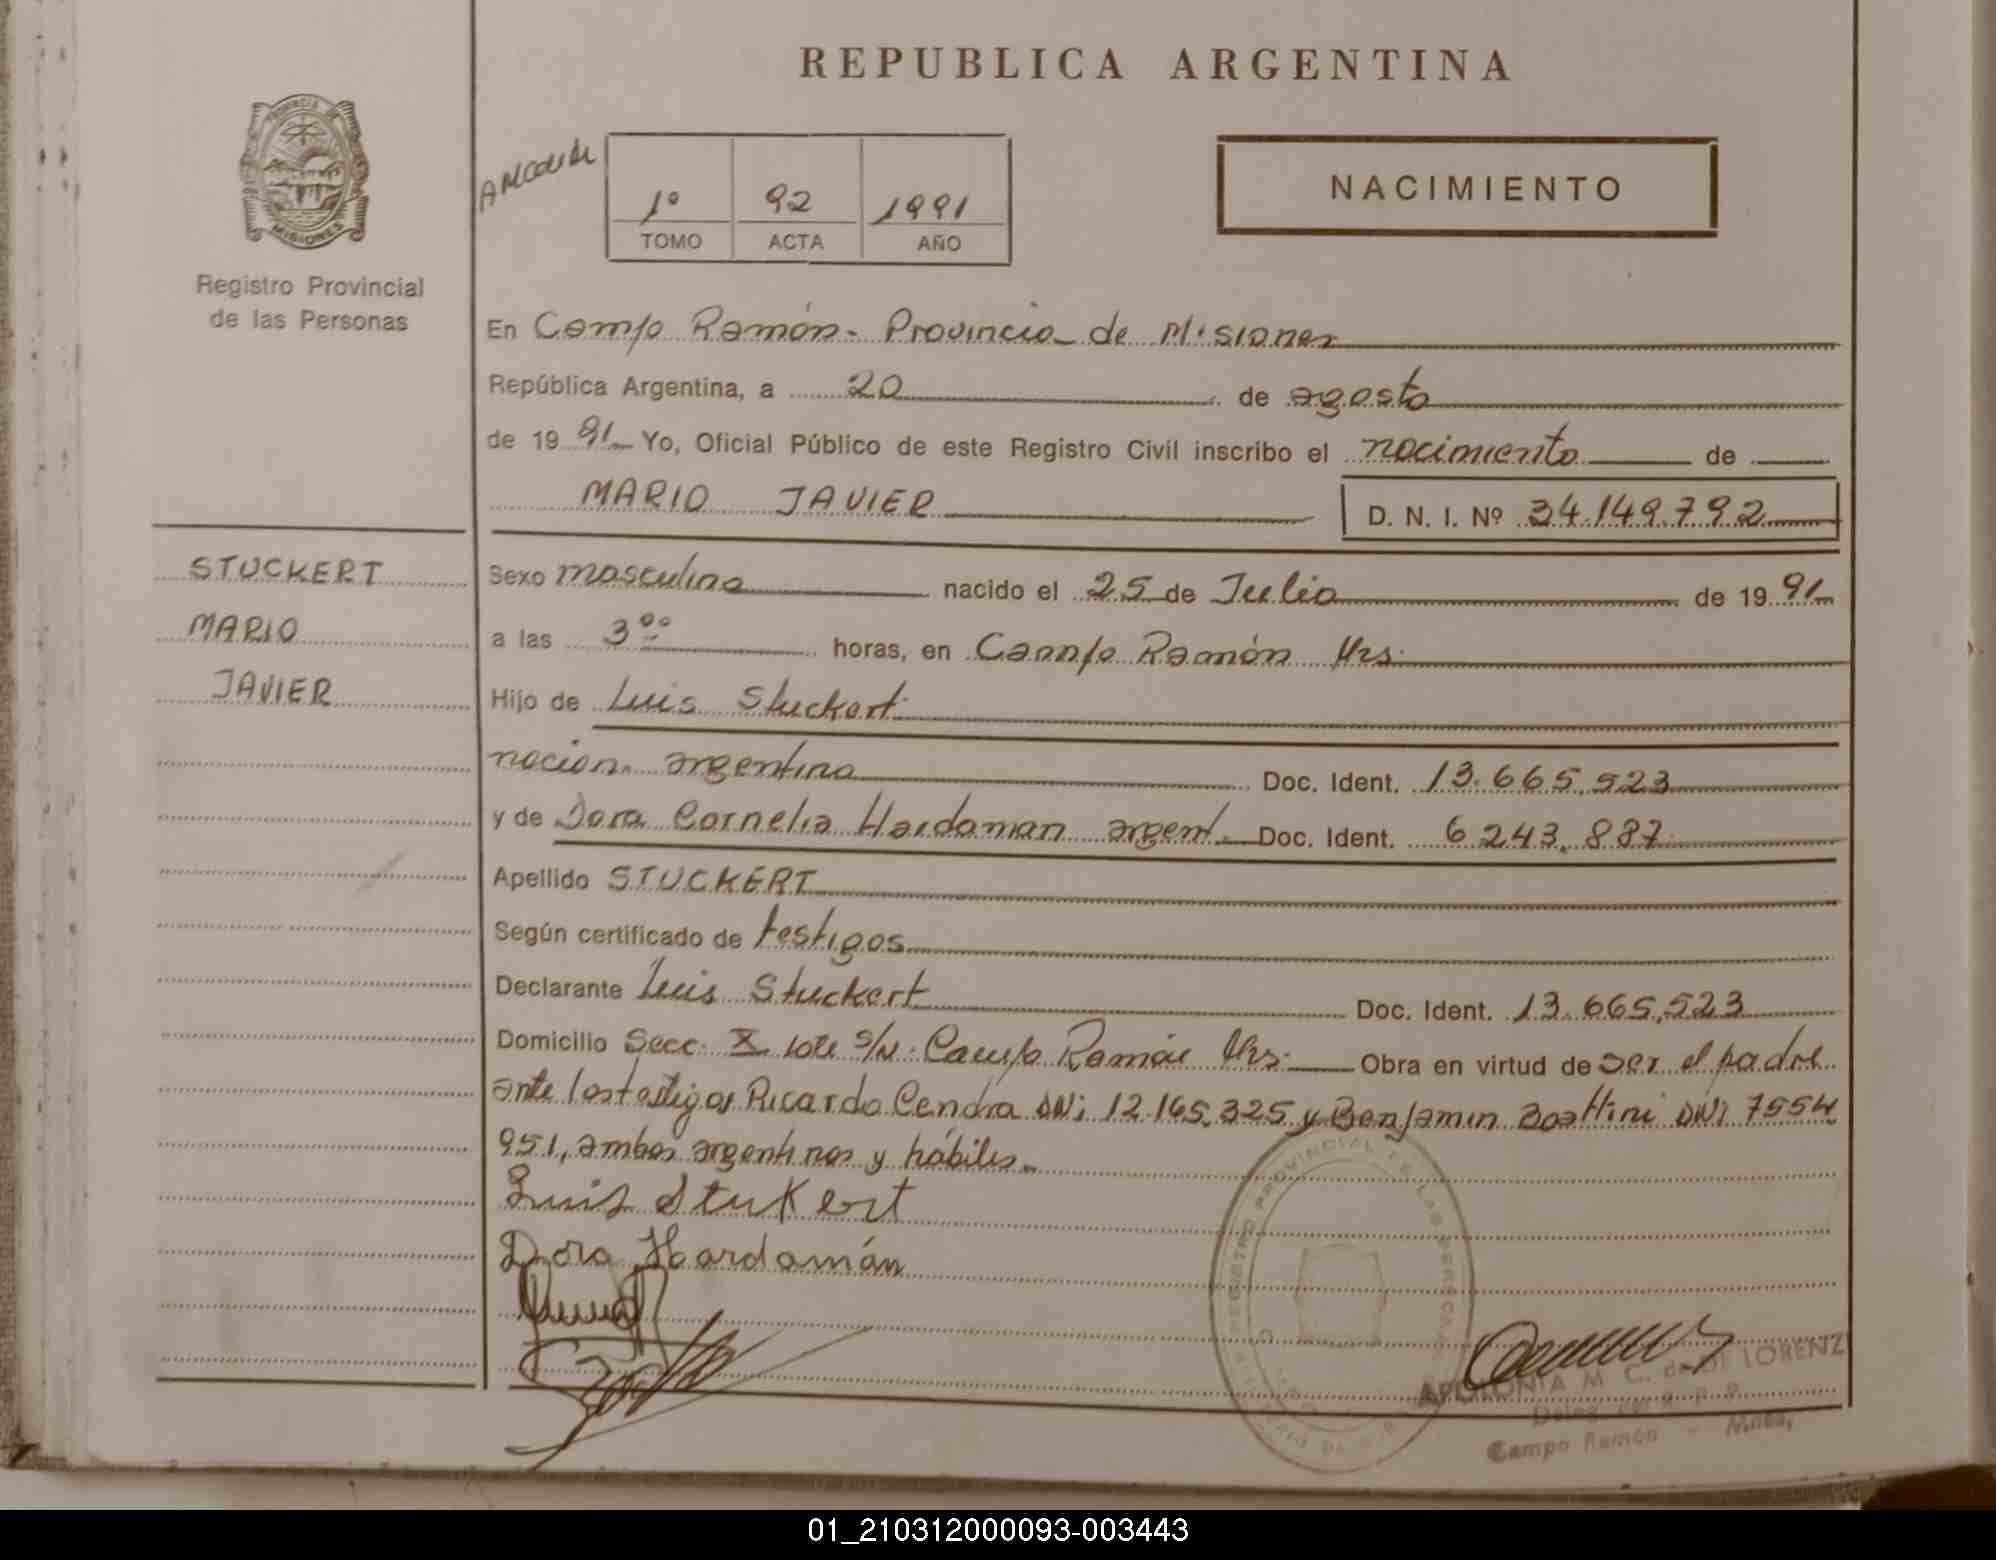 REPUBLICA ARGENTINA
PROVINCIA DE
MISIONES
Registro Provincial
de las Personas
1º 92 1991
TOMO ACTA AÑO
NACIMIENTO
En Campo Ramón - Provincia de Misiones
República Argentina, a 20 de agosto
de 19 91 Yo, Oficial Público de este Registro Civil inscribo el nacimiento de
MARIO JAVIER D. N. I. Nº 34.149.792
STUCKERT
MARIO
JAVIER
Sexo masculino nacido el 25 de Julio de 19 91
a las 3ºº horas, en Campo Ramón Mrs.
Hijo de Luis Stuckert
nacion. argentina Doc. Ident. 13.665.523
y de Dora Cornelia Hardaman argent. Doc. Ident. 6.243.887
Apellido STUCKERT
Según certificado de testigos
Declarante Luis Stuckert Doc. Ident. 13.665.523
Domicilio Secc. X lote s/n. Campo Ramón Mrs. Obra en virtud de ser el padre
ante los testigos Ricardo Cendra DNi 12.165.325 y Benjamin Boattini DNi 7554
951, ambos argentinos y hábiles.
Luis Stukert
Dora Hardamán
REGISTRO PROVINCIAL DE LAS PERSONAS
APOLONIA M. C. de DI LORENZ
Campo Ramón - Mnes.
01_210312000093-003443